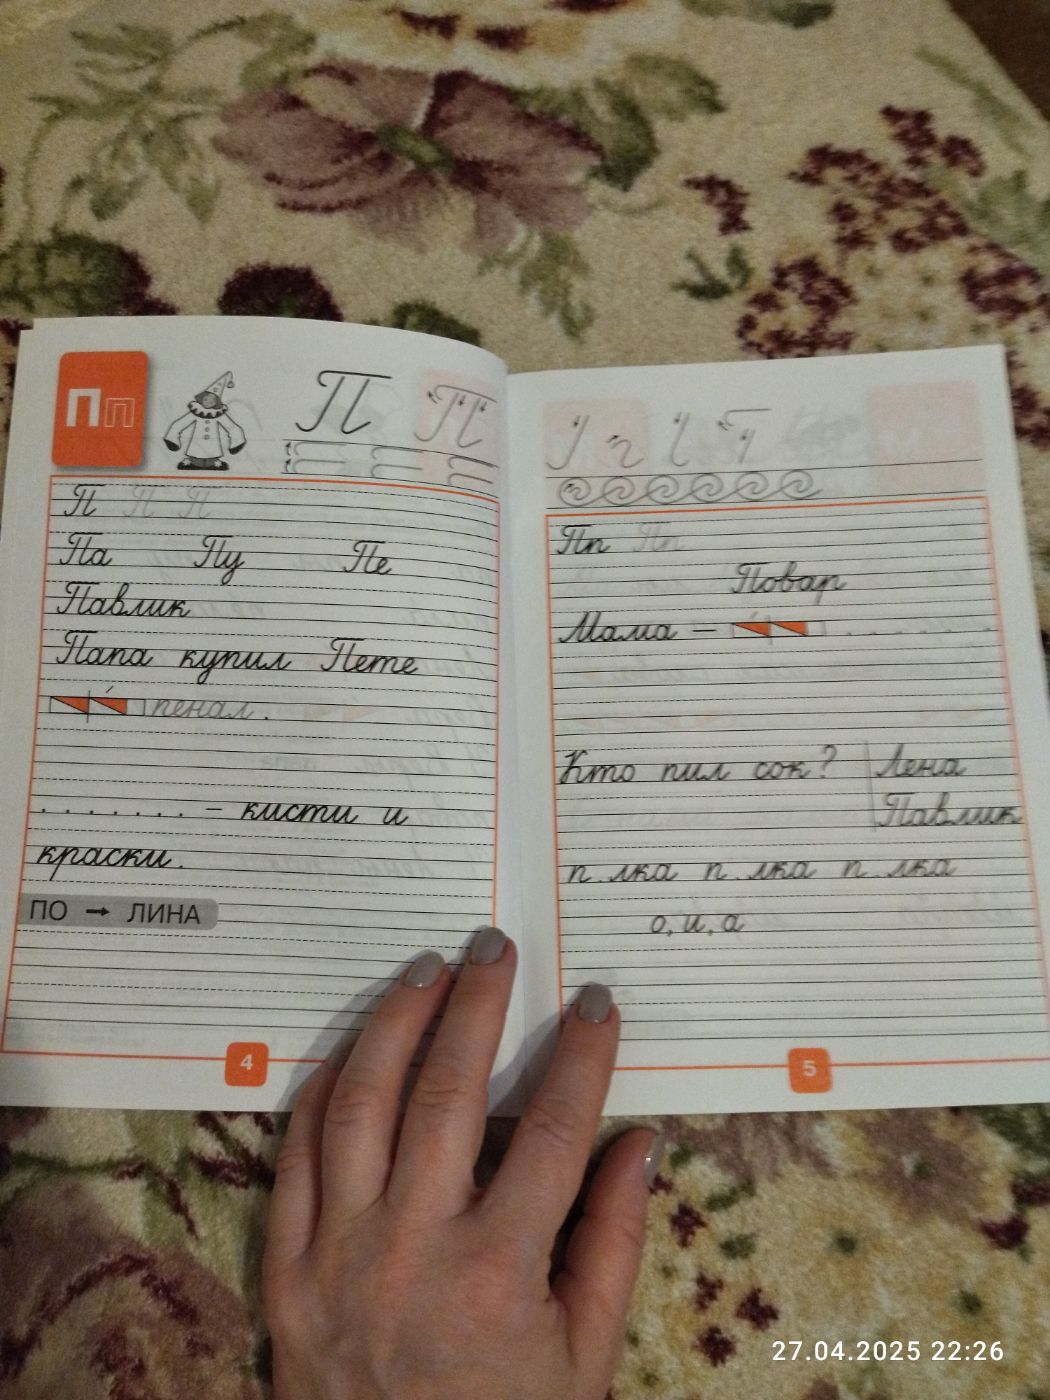 Пп
П П
П П П
Па Пу Пе
Павлик
Папа купил Пете
пенал.
. . . . . . . – кисти и
краски.
ПО → ЛИНА
4
Пп Пп
Повар
Мама – . . . . . . .
Кто пил сок? Лена
Павлик
п . лка п . лка п . лка
о, и, а
5
27.04.2025 22:26